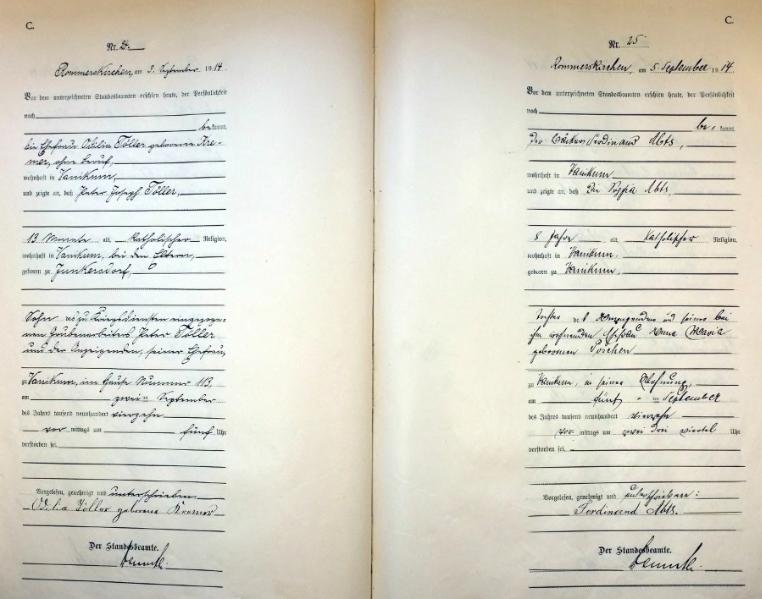 C.
Nr. 24
Rommerskirchen, am 3. September 1914.
Vor dem unterzeichneten Standesbeamten erschien heute, der Persönlichkeit
nach
bekannt,
die Ehefrau Odilia Töller geborene Kre-
mer, ohne Beruf,
wohnhaft in Vanikum,
und zeigte an, daß Peter Joseph Töller,
13 Monate alt, katholischer Religion,
wohnhaft in Vanikum, bei den Eltern,
geboren zu Junkersdorf,
Sohn des zu Kriegsdiensten eingezoge-
nen Grubenarbeiters Peter Töller
und der Anzeigenden, seiner Ehefrau,
zu Vanikum, im Hause Nummer 113,
am zweiten September
des Jahres tausend neunhundert vierzehn
vor mittags um fünf Uhr
verstorben sei.
Vorgelesen, genehmigt und unterschrieben
Odilia Töller geborene Kremer
Der Standesbeamte.
C.
Nr. 25
Rommerskirchen, am 5. September 1914.
Vor dem unterzeichneten Standesbeamten erschien heute, der Persönlichkeit
nach
be kannt,
der Bäcker Ferdinand Abts,
wohnhaft in Vanikum
und zeigte an, daß die Sophia Abts,
8 Jahre alt, katholischer Religion,
wohnhaft in Vanikum,
geboren zu Vanikum,
Tochter des Anzeigenden und seiner bei
ihm wohnenden Ehefrau Anna Maria
geborenen
zu Vanikum, in seiner Wohnung,
am fünften September
des Jahres tausend neunhundert vierzehn
vor mittags um zwei drei viertel Uhr
verstorben sei.
Vorgelesen, genehmigt und unterschrieben:
Ferdinand Abts.
Der Standesbeamte.